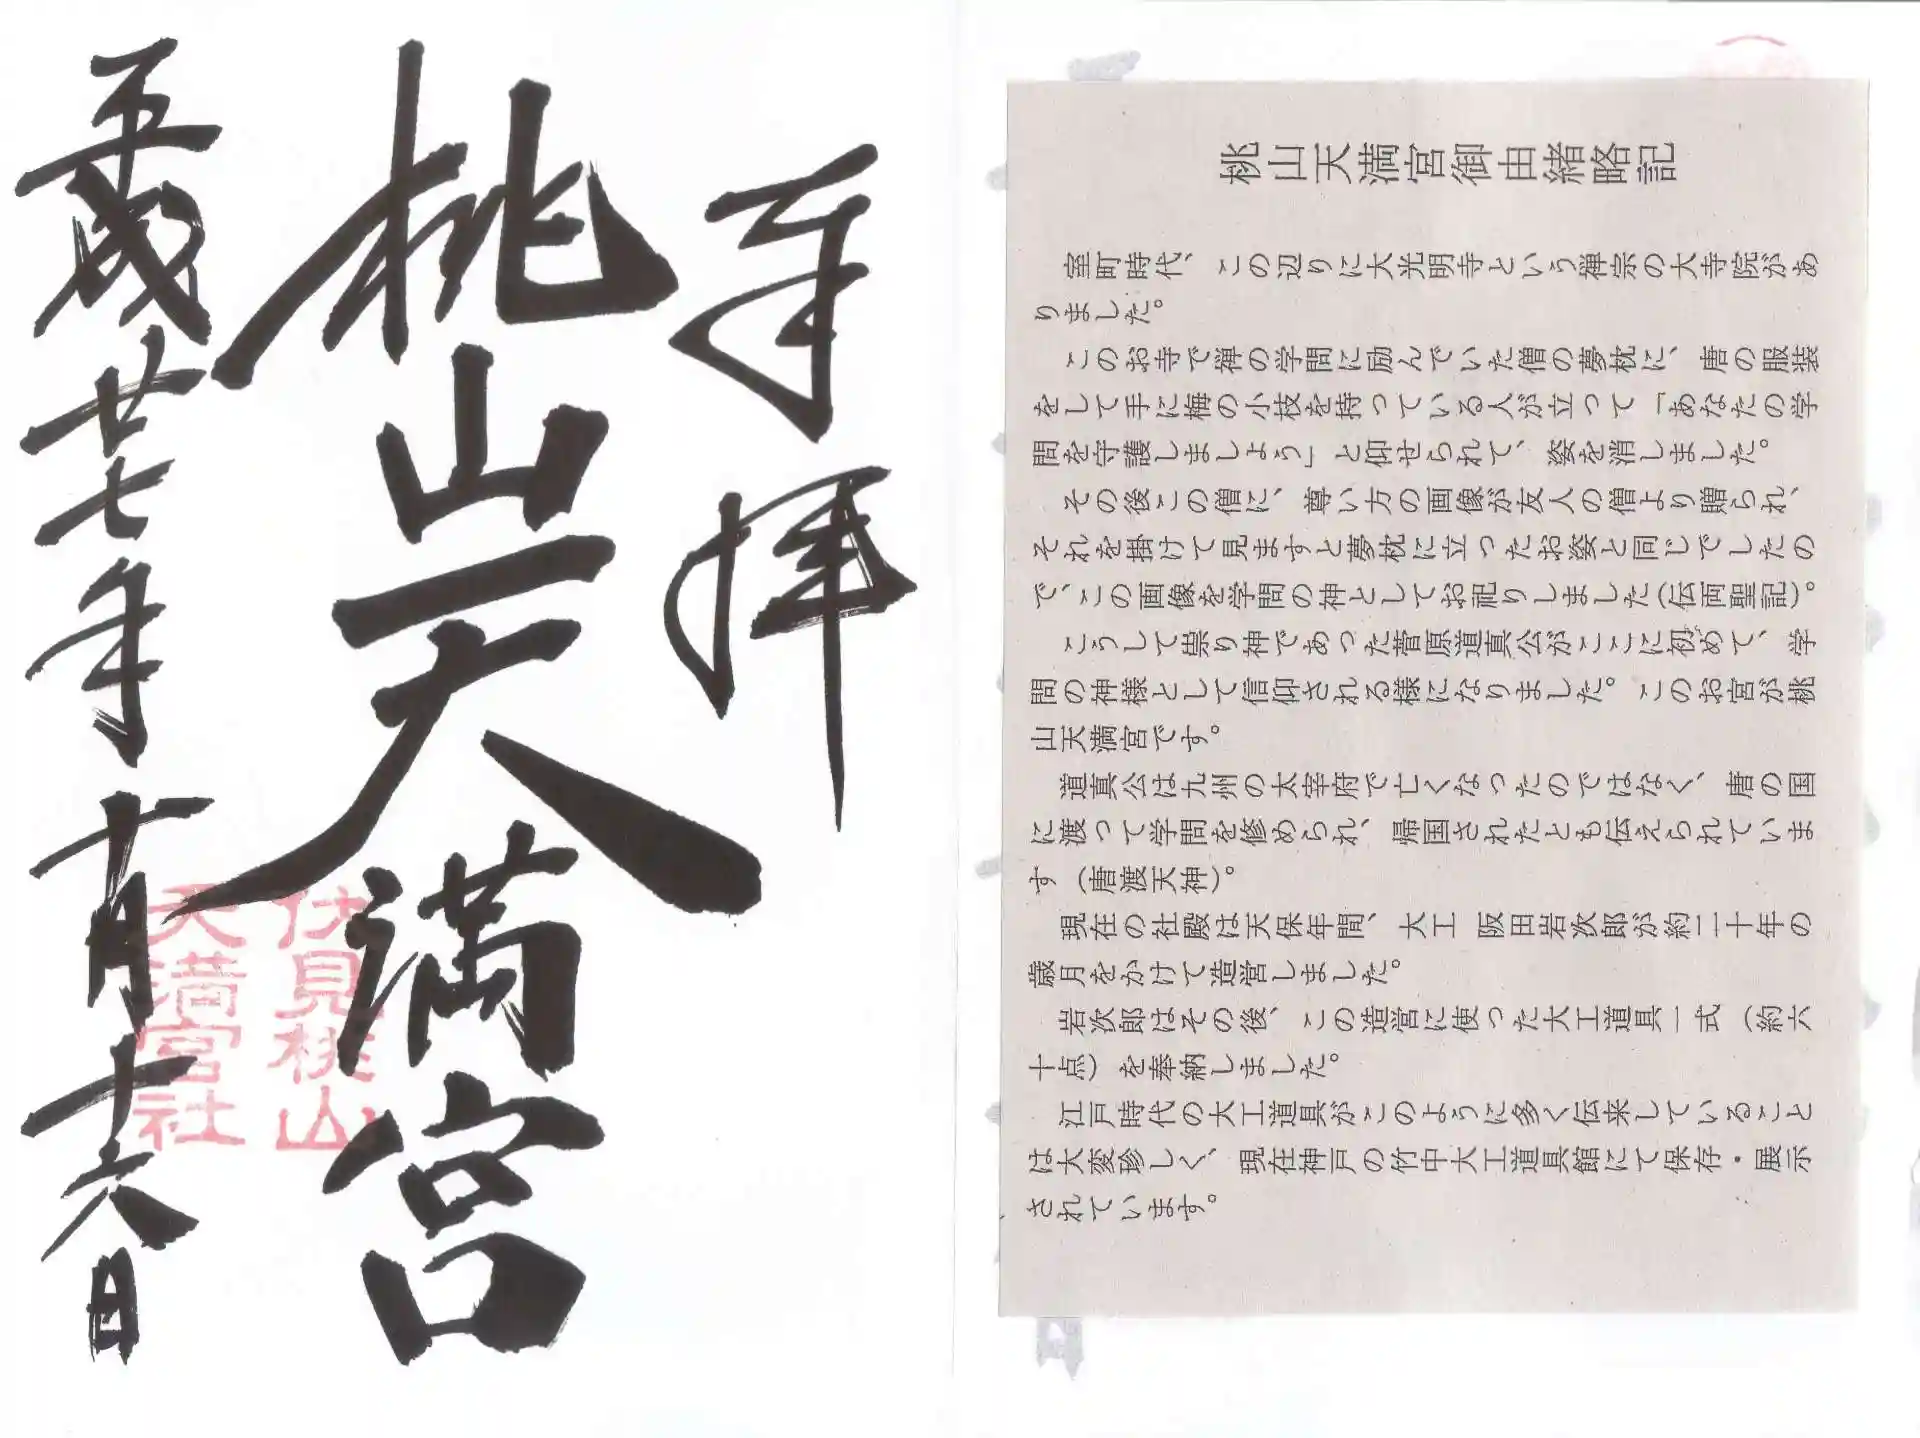 奉拝
桃山天満宮
平成廿七年十月十六日
伏見桃山
天満宮社
桃山天満宮御由緒略記
室町時代、この辺りに大光明寺という禅宗の大寺院があ
りました。
このお寺で禅の学問に励んでいた僧の夢枕に、唐の服装
をして手に梅の小枝を持っている人が立って「あなたの学
問を守護しましょう」と仰せられて、姿を消しました。
その後この僧に、尊い方の画像が友人の僧より贈られ、
それを掛けて見ますと夢枕に立ったお姿と同じでしたの
で、この画像を学問の神としてお祀りしました(伝両聖記)。
こうして祟り神であった菅原道真公がここに初めて、学
問の神様として信仰される様になりました。このお宮が桃
山天満宮です。
道真公は九州の太宰府で亡くなったのではなく、唐の国
に渡って学問を修められ、帰国されたとも伝えられていま
す(唐渡天神)。
現在の社殿は天保年間、大工 阪田岩次郎が約二十年の
歳月をかけて造営しました。
岩次郎はその後、この造営に使った大工道具一式(約六
十点)を奉納しました。
江戸時代の大工道具がこのように多く伝来していること
は大変珍しく、現在神戸の竹中大工道具館にて保存・展示
されています。